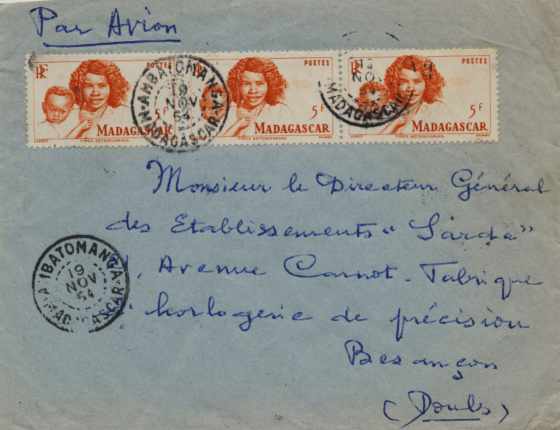 Par Avion
RF POSTES RF POSTES RF POSTES
5F 5F 5F
MADAGASCAR MADAGASCAR MADAGASCAR
AMBATOMANGA
19
NOV
54
MADAGASCAR
NOV
MADAGASCAR
Monsieur le Directeur Général
des Etablissements "Sarda"
Avenue Carnot - Fabrique
horlogerie de précision
Besançon
(Doubs)
AMBATOMANGA
19
NOV
54
MADAGASCAR